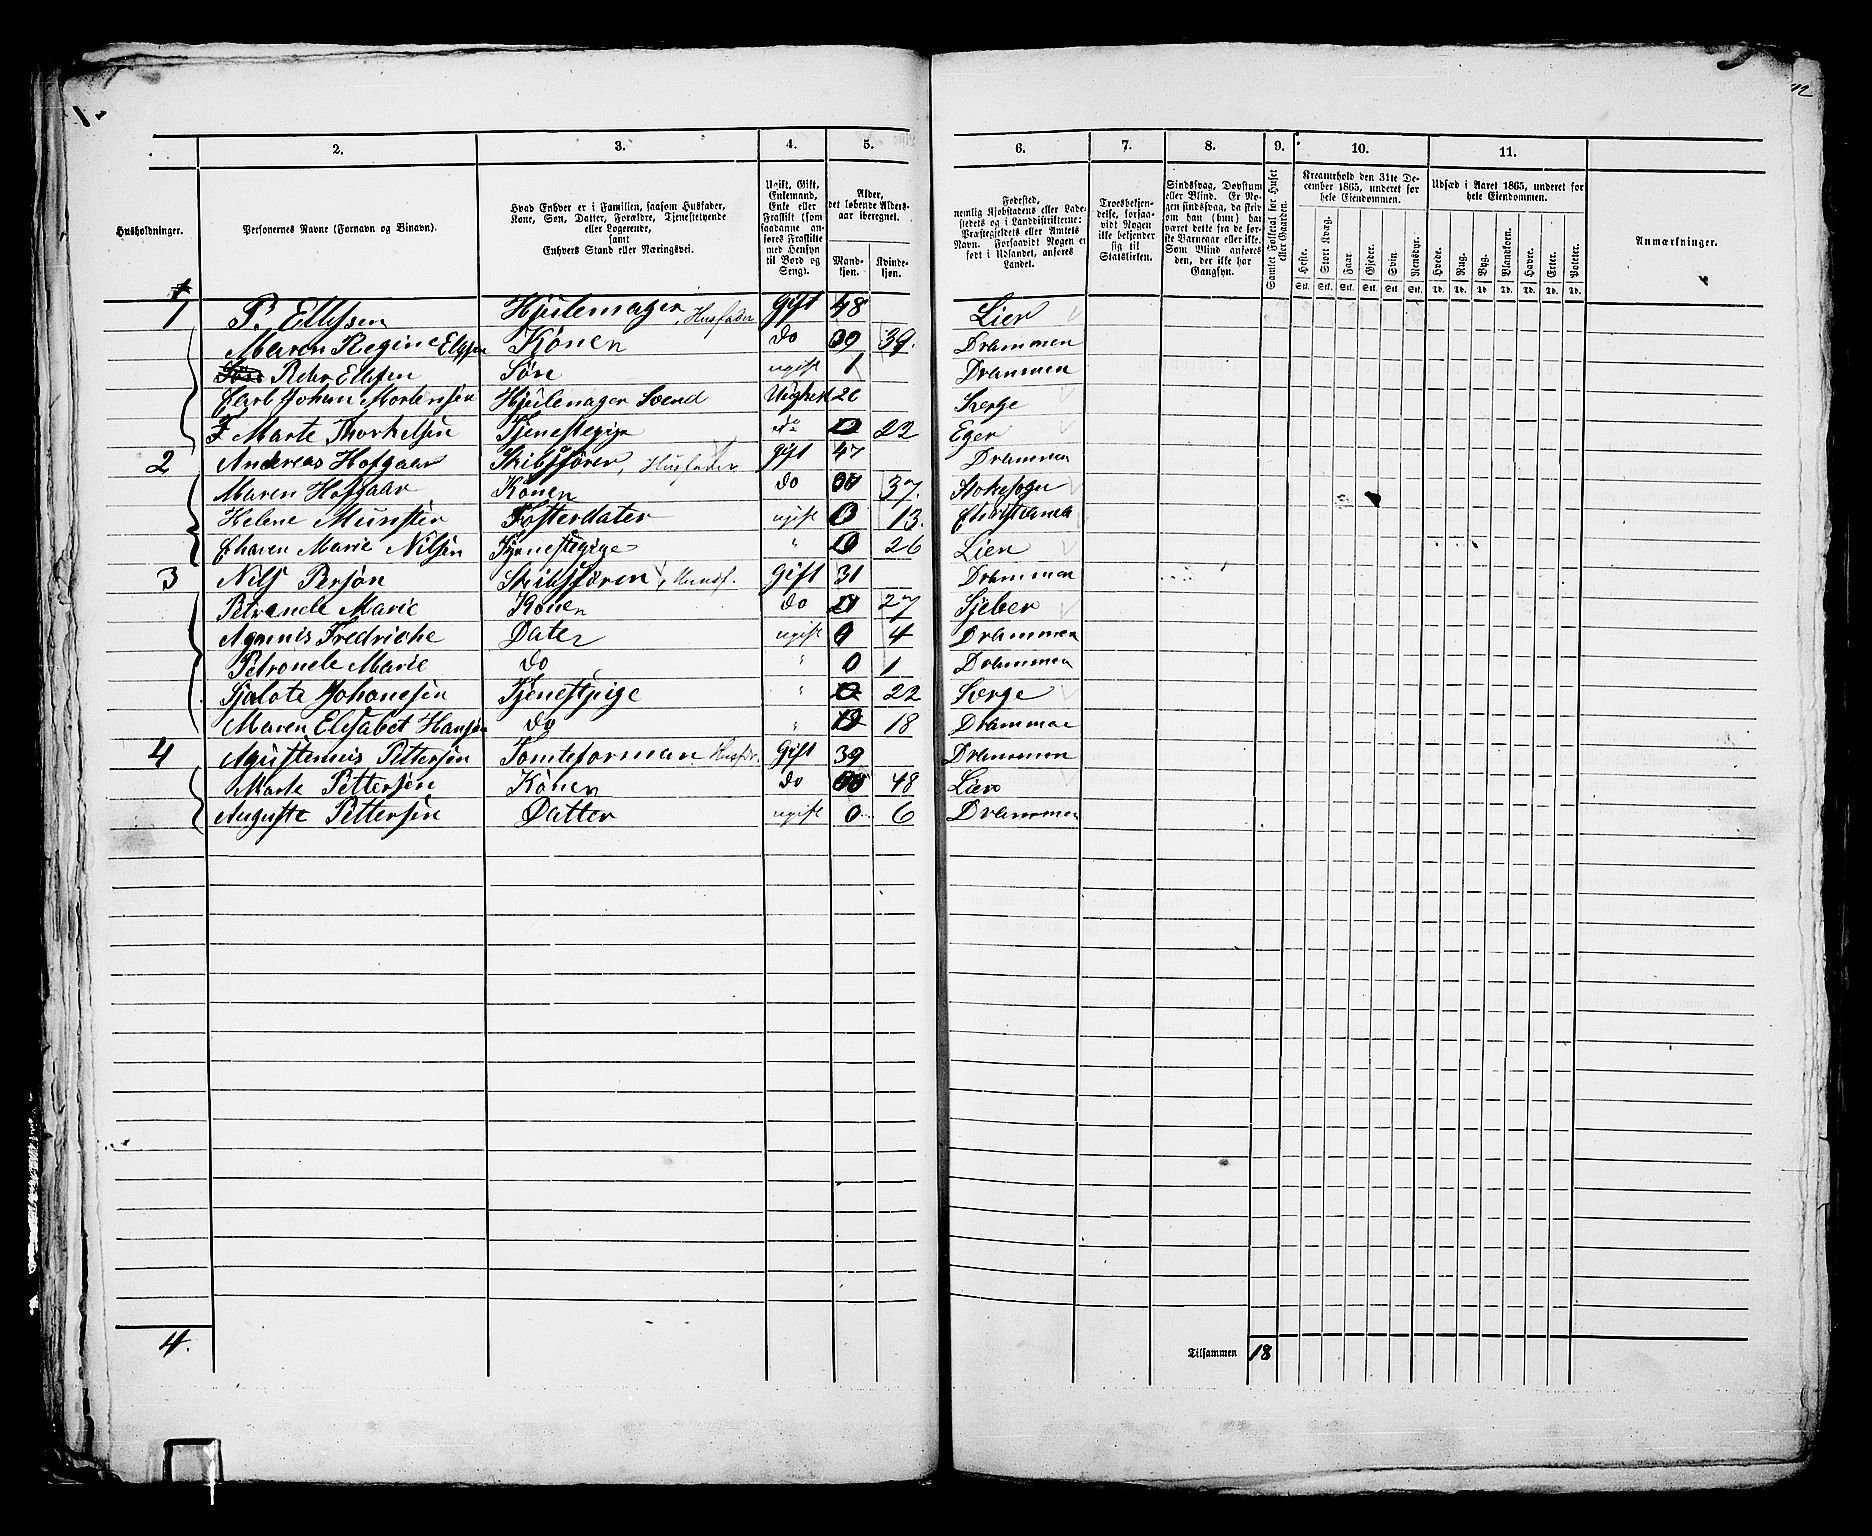 2. 3. 4. 5. 6. 7. 8. 9. 10. 11.
Husholdninger.
Personernes Navne (Fornavn og Binavn).
Hvad Enhver er i Familien, saasom Husfader,
Kone, Søn, Datter, Forældre, Tjenestetyende
eller Logerende,
samt
Enhvers Stand eller Næringsvei.
Ugift, Gift,
Enkemand,
Enke eller
Fraskilt (som
saadanne an-
føres Fraskilte
med Hensyn
til Bord og
Seng).
Alder,
det løbende Alders-
aar iberegnet.
Mand-
kjøn.
Kvinde-
kjøn.
Fødested,
nemlig Kjøbstadens eller Lade-
stedets og i Landdistrikterne:
Præstegjeldets eller Amtets
Navn. Forsaavidt Nogen er
født i Udlandet, anføres
Landet.
Troesbekjen-
delse, forsaa-
vidt Nogen
ikke bekjender
sig til
Statskirken.
Sindssvag, Døvstum
eller Blind. Er No-
gen sindssvag, da skriv
om han (hun) har
været dette fra de før-
ste Barneaar eller ikke.
Som Blind anføres
den, der ikke har
Gangsyn.
Samlet Folketal for Huset
eller Gaarden.
Kreaturhold den 31te De-
cember 1865, underet for
hele Eiendommen.
Heste. Stort Kvæg. Faar. Gjeder. Svin. Rensdyr.
Stk. Stk. Stk. Stk. Stk. Stk.
Udsæd i Aaret 1865, underet for
hele Eiendommen.
Hvede. Rug. Byg. Blandkorn. Havre. Erter. Poteter.
Td. Td. Td. Td. Td. Td. Td.
Anmærkninger.
1 P. Ellefsen Hjulemager, Husfader Gift 48 Lier
Maren Regine Ellefsen Konen do 39. Drammen
Peder Ellefsen Søn ugift 1 Drammen
Carl Johan Mortensen Hjulemager Svend Ughest 20 Sverge
Marte Thorkelsen Tjenestegige do 22 Eger
2 Andreas Hofgaar Skibsfører, Husfader gift 47 Drammen
Maren Hofgaar Konen do 37. Stokesogn
Helene Munster Fosterdater ugift 13. Christiania
Maren Marie Nilsen Tjenestegige " 26 Lier
3 Nils Persøn Skibsføren, Husf. Gift 31 Drammen
Petronele Marie Konen do 27 Sjeber
Agnnis Fredriche Dater ugift 4 Drammen
Petronele Marie do " 0 1 Drammen
Sjalote Johanesen Tjenestpige " 22 Sverge
Maren Elisabet Hansen do " 18 Drammen
4 Agustenius Pettersen Tomteforman Husfdr. Gift 39 Drammen
Marte Pettersen Konen do 48 Lier
Auguste Pettersen Datter ugift 0 6 Drammen
4.
Tilsammen 18